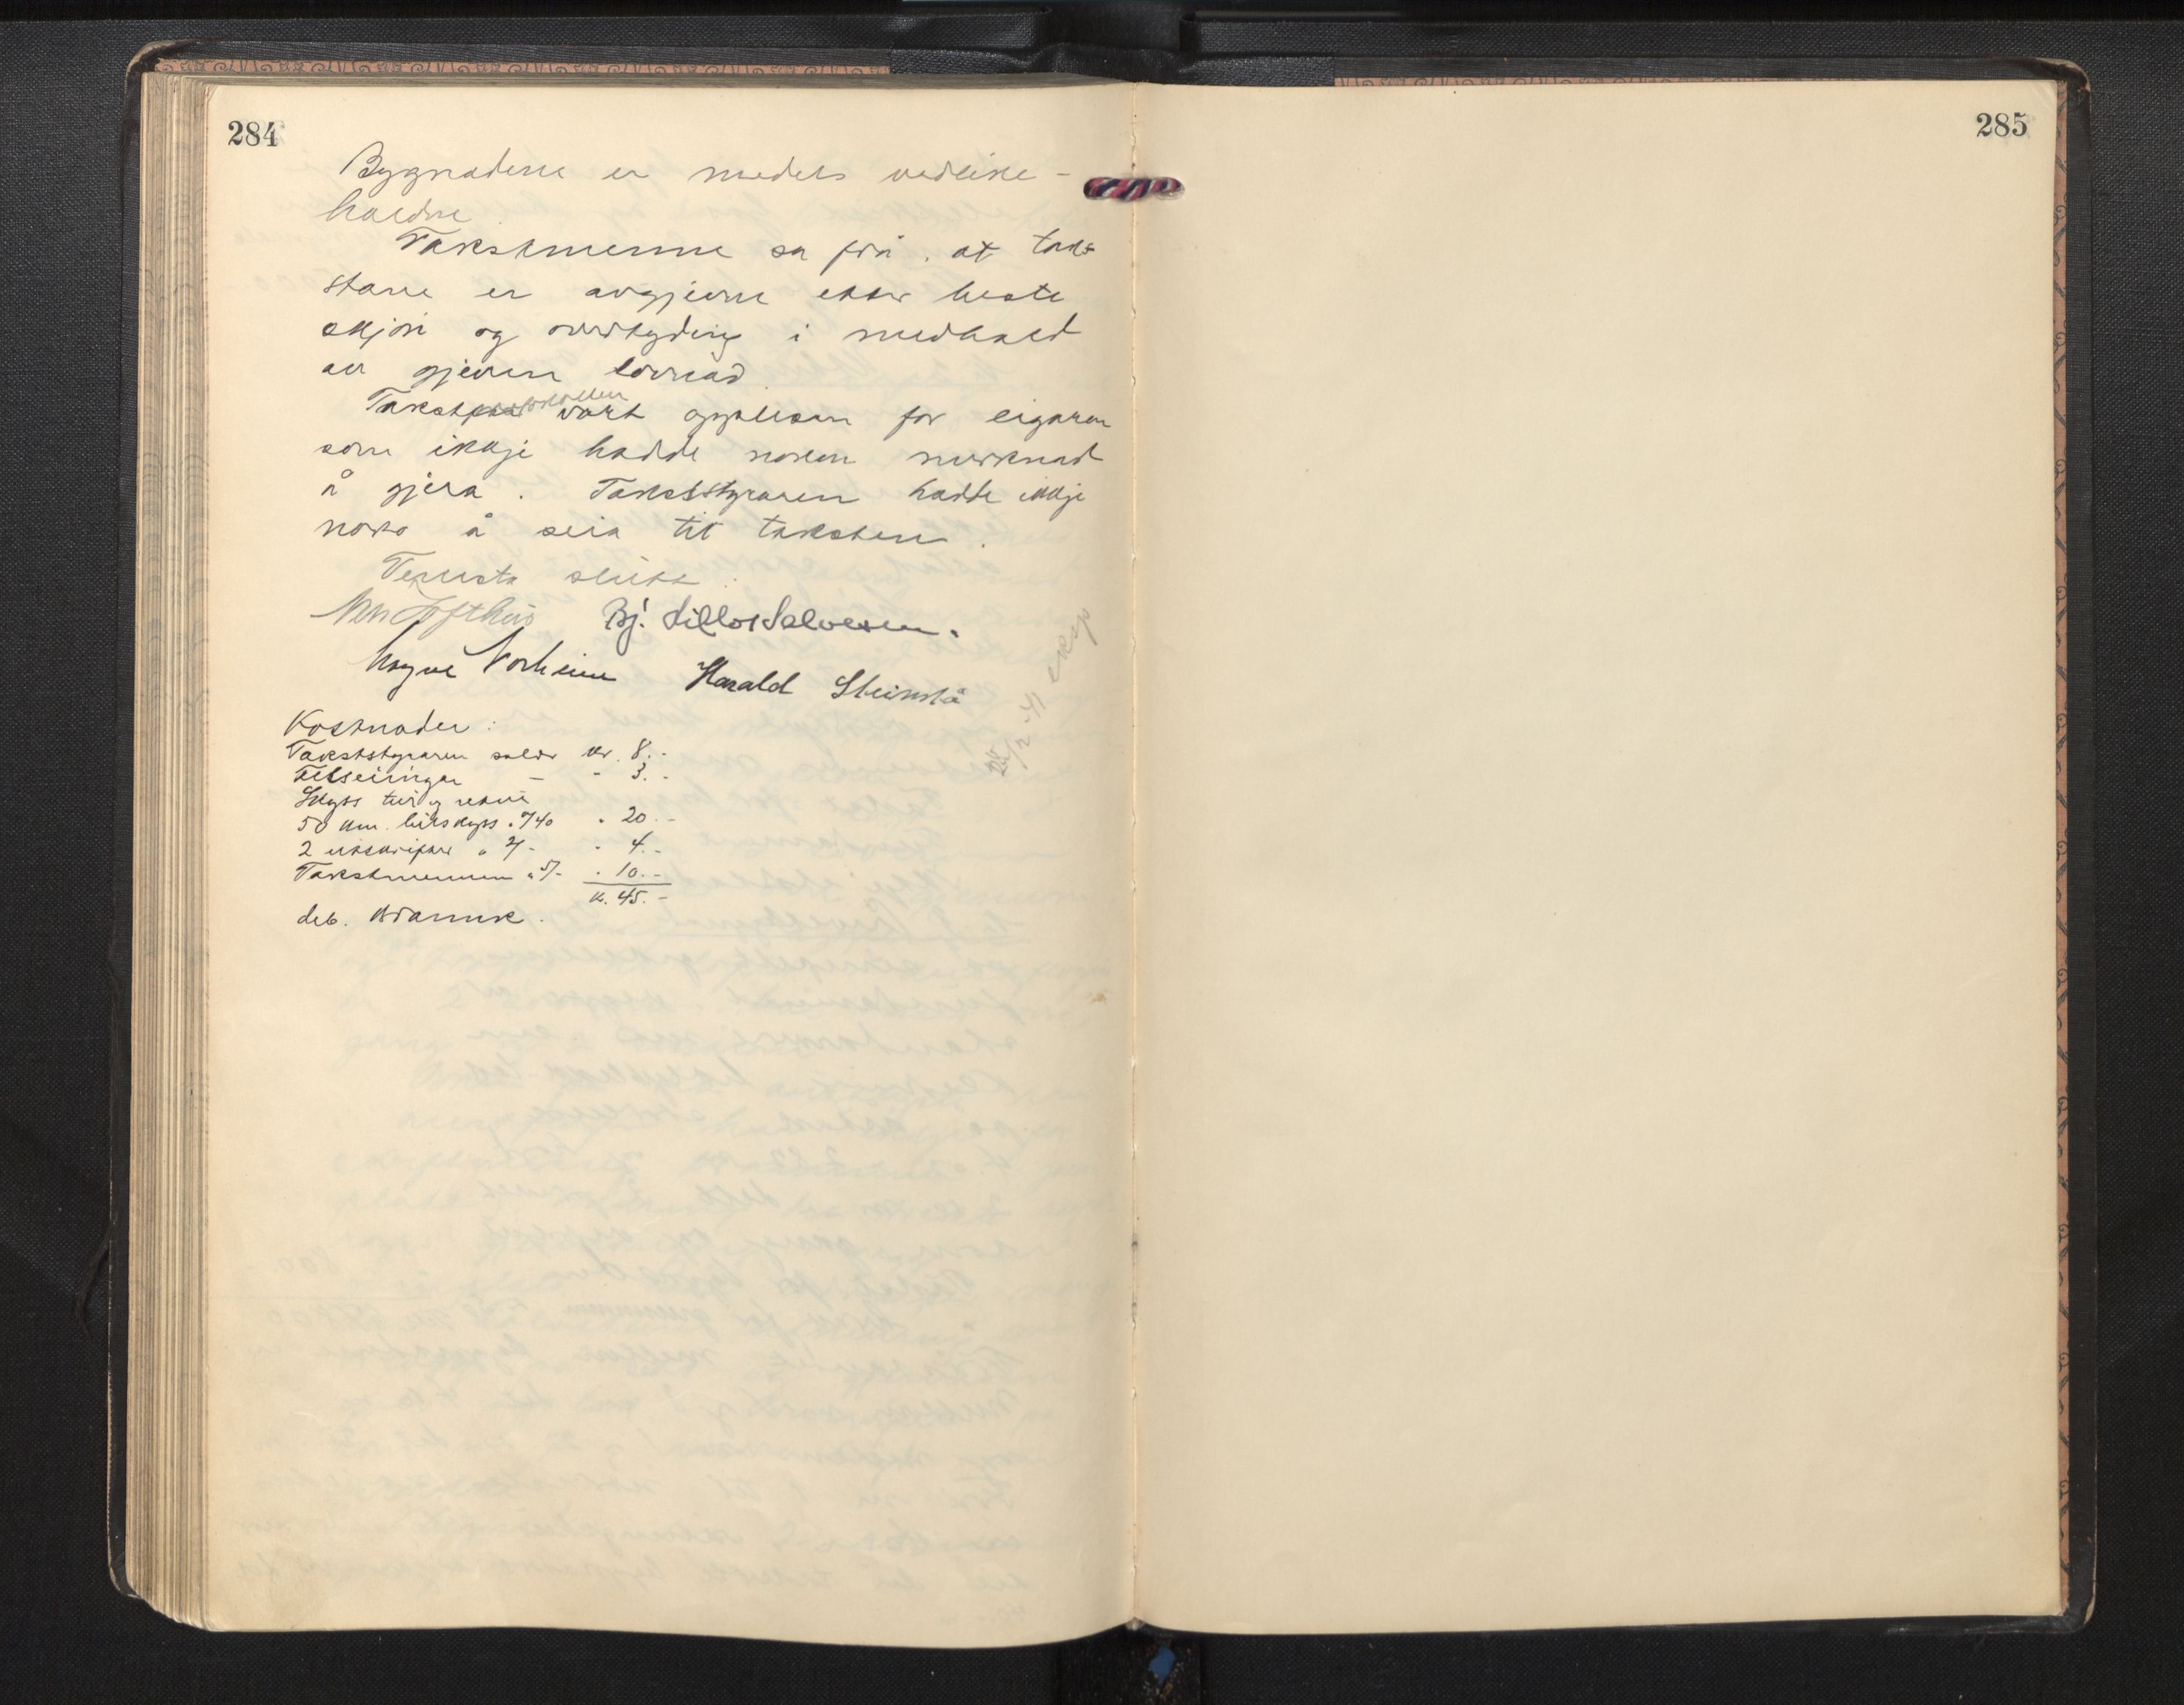 284
Bygnadene er medels vedlike-
haldne.
Takstmenne sa frå, at tak-
stane er avgjevne etter beste
skjøn og overtyding i medhald
av gjeven lovnad.
Takstprotokollen vart opplesen for eigaren
som ikkje hadde noken merknad
å gjera. Takststyraren hadde ikkje
noko å seia til taksten.
Testa slutt.
Lofthus Bj. Lillo Salvesen.
Norheim Harald Steinstø
Kostnader:
Takststyraren salær kr. 8.-
Tilseiingar - " 3.-
Skyss tur og retur
50 km. bilskyss à 740 " 20.-
2 utskrifter à 2/- " 4.-
Takstmennen à 5/- " 10.-
kr. 45.-
deb. Brannk.
/2-41 eksp
285